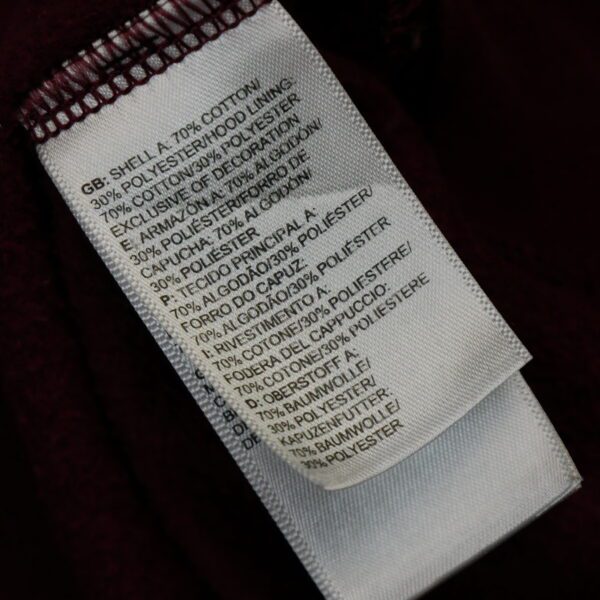 GB: SHELL A: 70% COTTON/
30% POLYESTER/HOOD LINING:
70% COTTON/30% POLYESTER
EXCLUSIVE OF DECORATION
E: ARMAZÓN A: 70% ALGODÓN/
30% POLIÉSTER/FORRO DE
CAPUCHA: 70% ALGODÓN/
30% POLIÉSTER
P: TECIDO PRINCIPAL A:
70% ALGODÃO/30% POLIÉSTER/
FORRO DO CAPUZ:
70% ALGODÃO/30% POLIÉSTER
I: RIVESTIMENTO A:
70% COTONE/30% POLIESTERE/
FODERA DEL CAPPUCCIO-
70% COTONE/30% POLIESTERE
D: OBERSTOFF A:
70% BAUMWOLLE/
30% POLYESTER/
KAPUZENFUTTER:
70% BAUMWOLLE/
30% POLYESTER